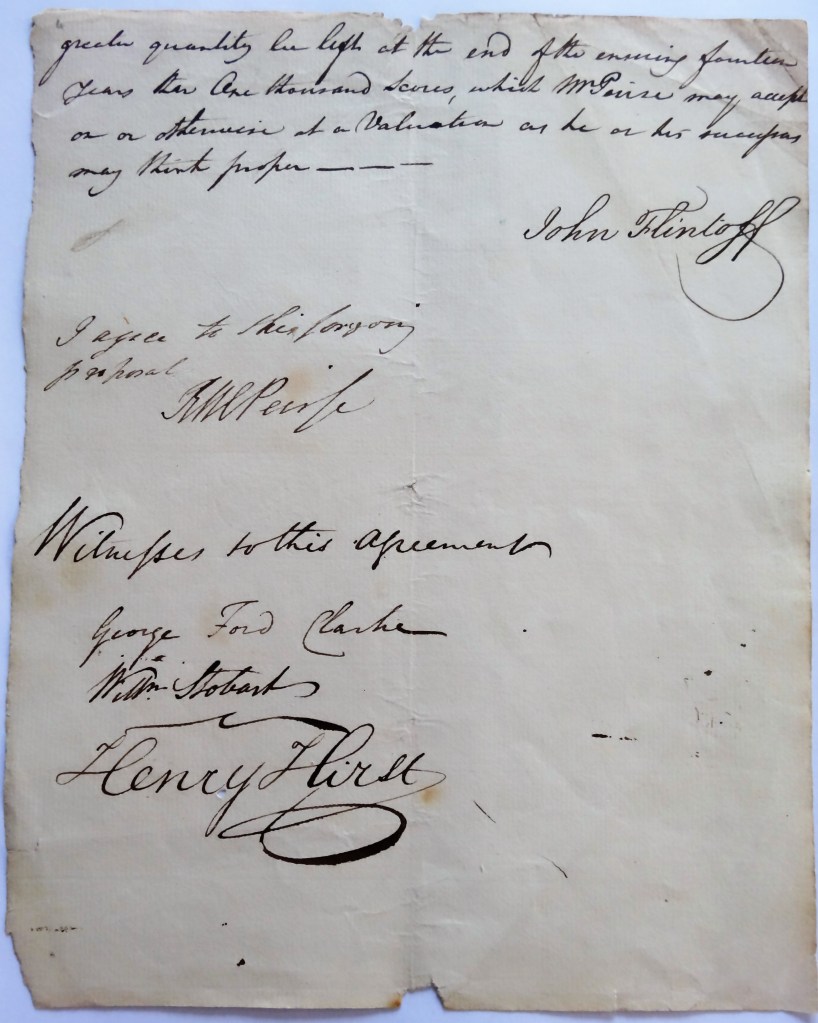 greater quantity be left at the end of the ensuing fourteen
Years than One thousand Scores, which Mr Peirse may accept
on or otherwise at a Valuation as he or his successors
may think proper — — —
John Flintoff
I agree to this forgoing
proposal
Peirse
Witnesses to this Agreement
George Ford Clarke
Willm Stobart
Henry Hirst